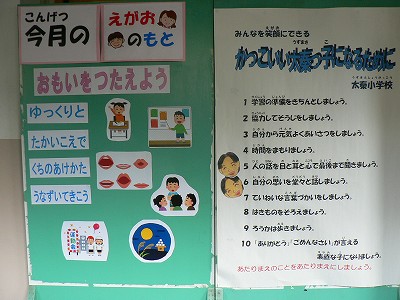 こんげつ
今月の
えがお
のもと
おもいをつたえよう
ゆっくりと
たかいこえで
くちのあけかた
うなずいてきこう
みんなを笑顔にできる
かっこいい太秦っ子になるために
太秦小学校
1 学習の準備をきちんとしましょう。
2 協力してそうじをしましょう。
3 自分から元気よくあいさつをしましょう。
4 時間をまもりましょう。
5 人の話を目と耳と心で最後まで聞きましょう。
6 自分の思いを堂々と話しましょう。
7 ていねいな言葉づかいをしましょう。
8 はきものをそろえましょう。
9 ろうかは歩きましょう。
10 「ありがとう」「ごめんなさい」が言える
素直な子になりましょう。
あたりまえのことをあたりまえにしましょう。